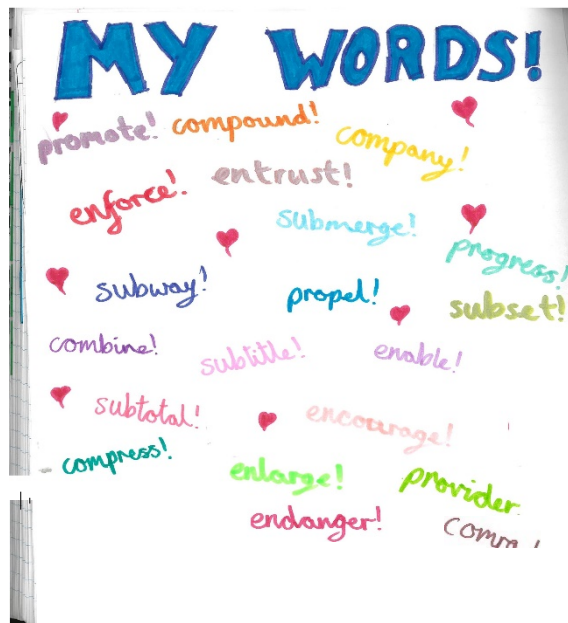 MY WORDS!
promote! compound!
company!
entrust!
enforce!
submerge!
progress!
subway!
propel!
subset!
combine!
subtitle!
enable!
subtotal!
encourage!
compress!
enlarge!
provider
endanger!